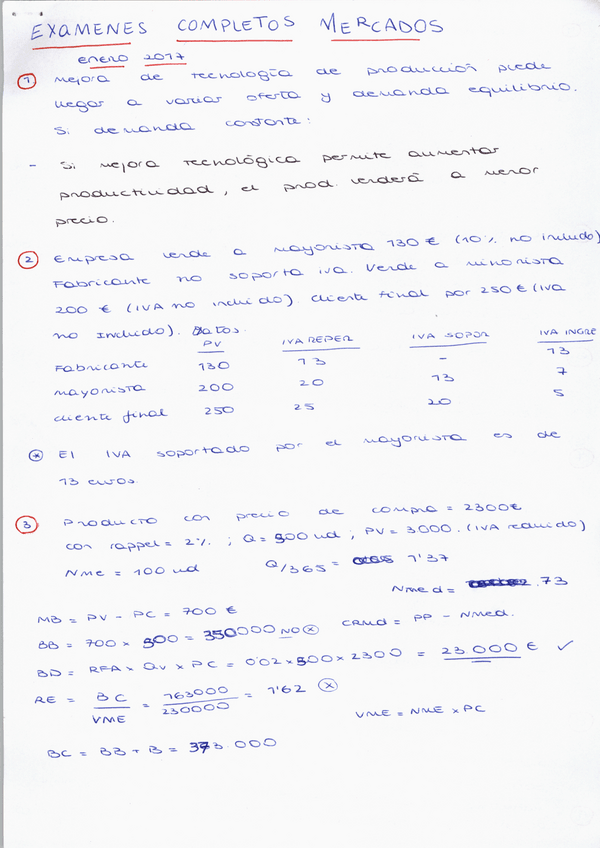 EXAMENES COMPLETOS MERCADOS
enero 2017
① Mejora de tecnología de producción puede
llegar a variar oferta y demanda equilibrio.
Si demanda constante:
- Si mejora tecnológica permite aumentar
productividad, el prod. venderá a menor
precio.
② Empresa vende a mayorista 130 € (10% no incluido)
Fabricante no soporta iva. Vende a minorista
200 € (IVA no incluido). Cliente final por 250 € (IVA
no incluido). Datos.
PV IVA REPER IVA SOPOR IVA INGRE
Fabricante 130 13 - 13
mayorista 200 20 13 7
cliente final 250 25 20 5
* El IVA soportado por el mayorista es de
13 euros.
③ Producto con precio de compra = 2300€
con rappel = 2% ; Q = 500 ud ; PV = 3000. (IVA reducido)
Nme = 100 ud Q/365 = 1'37
Nmed = 73
MB = PV - PC = 700 €
BB = 700 x 500 = 350000 NO * CRMd = PP - Nmed.
BD = RFA x Qv x PC = 0'02 x 500 x 2300 = 23 000 € ✓
RE = BC / VME = 763000 / 230000 = 1'62 *
VME = NME x PC
BC = BB + B = 373.000